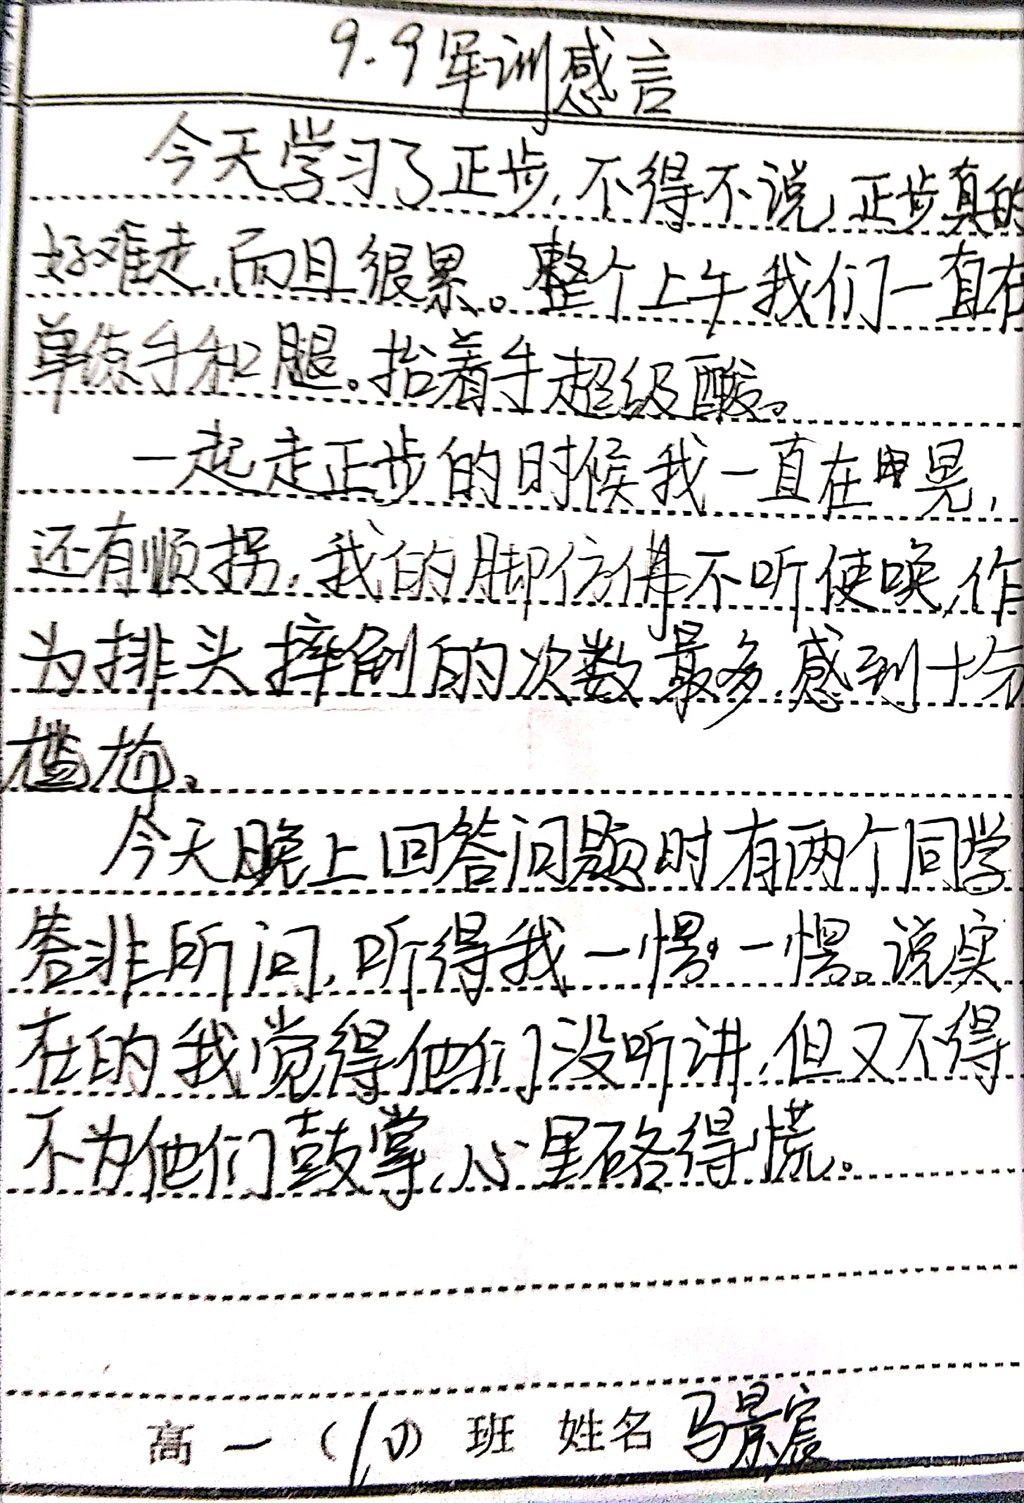 9.9军训感言
今天学习了正步,不得不说,正步真的
好难走,而且很累。整个上午我们一直在
单练手和腿。抬着手超级酸。
一起走正步的时候我一直在晃,
还有顺拐,我的脚仿佛不听使唤,作
为排头摔倒的次数最多,感到十分
尴尬。
今天晚上回答问题时有两个同学
答非所问,听得我一愣一愣。说实
在的我觉得他们没听讲,但又不得
不为他们鼓掌,心里硌得慌。
高一( )班 姓名 马景宸